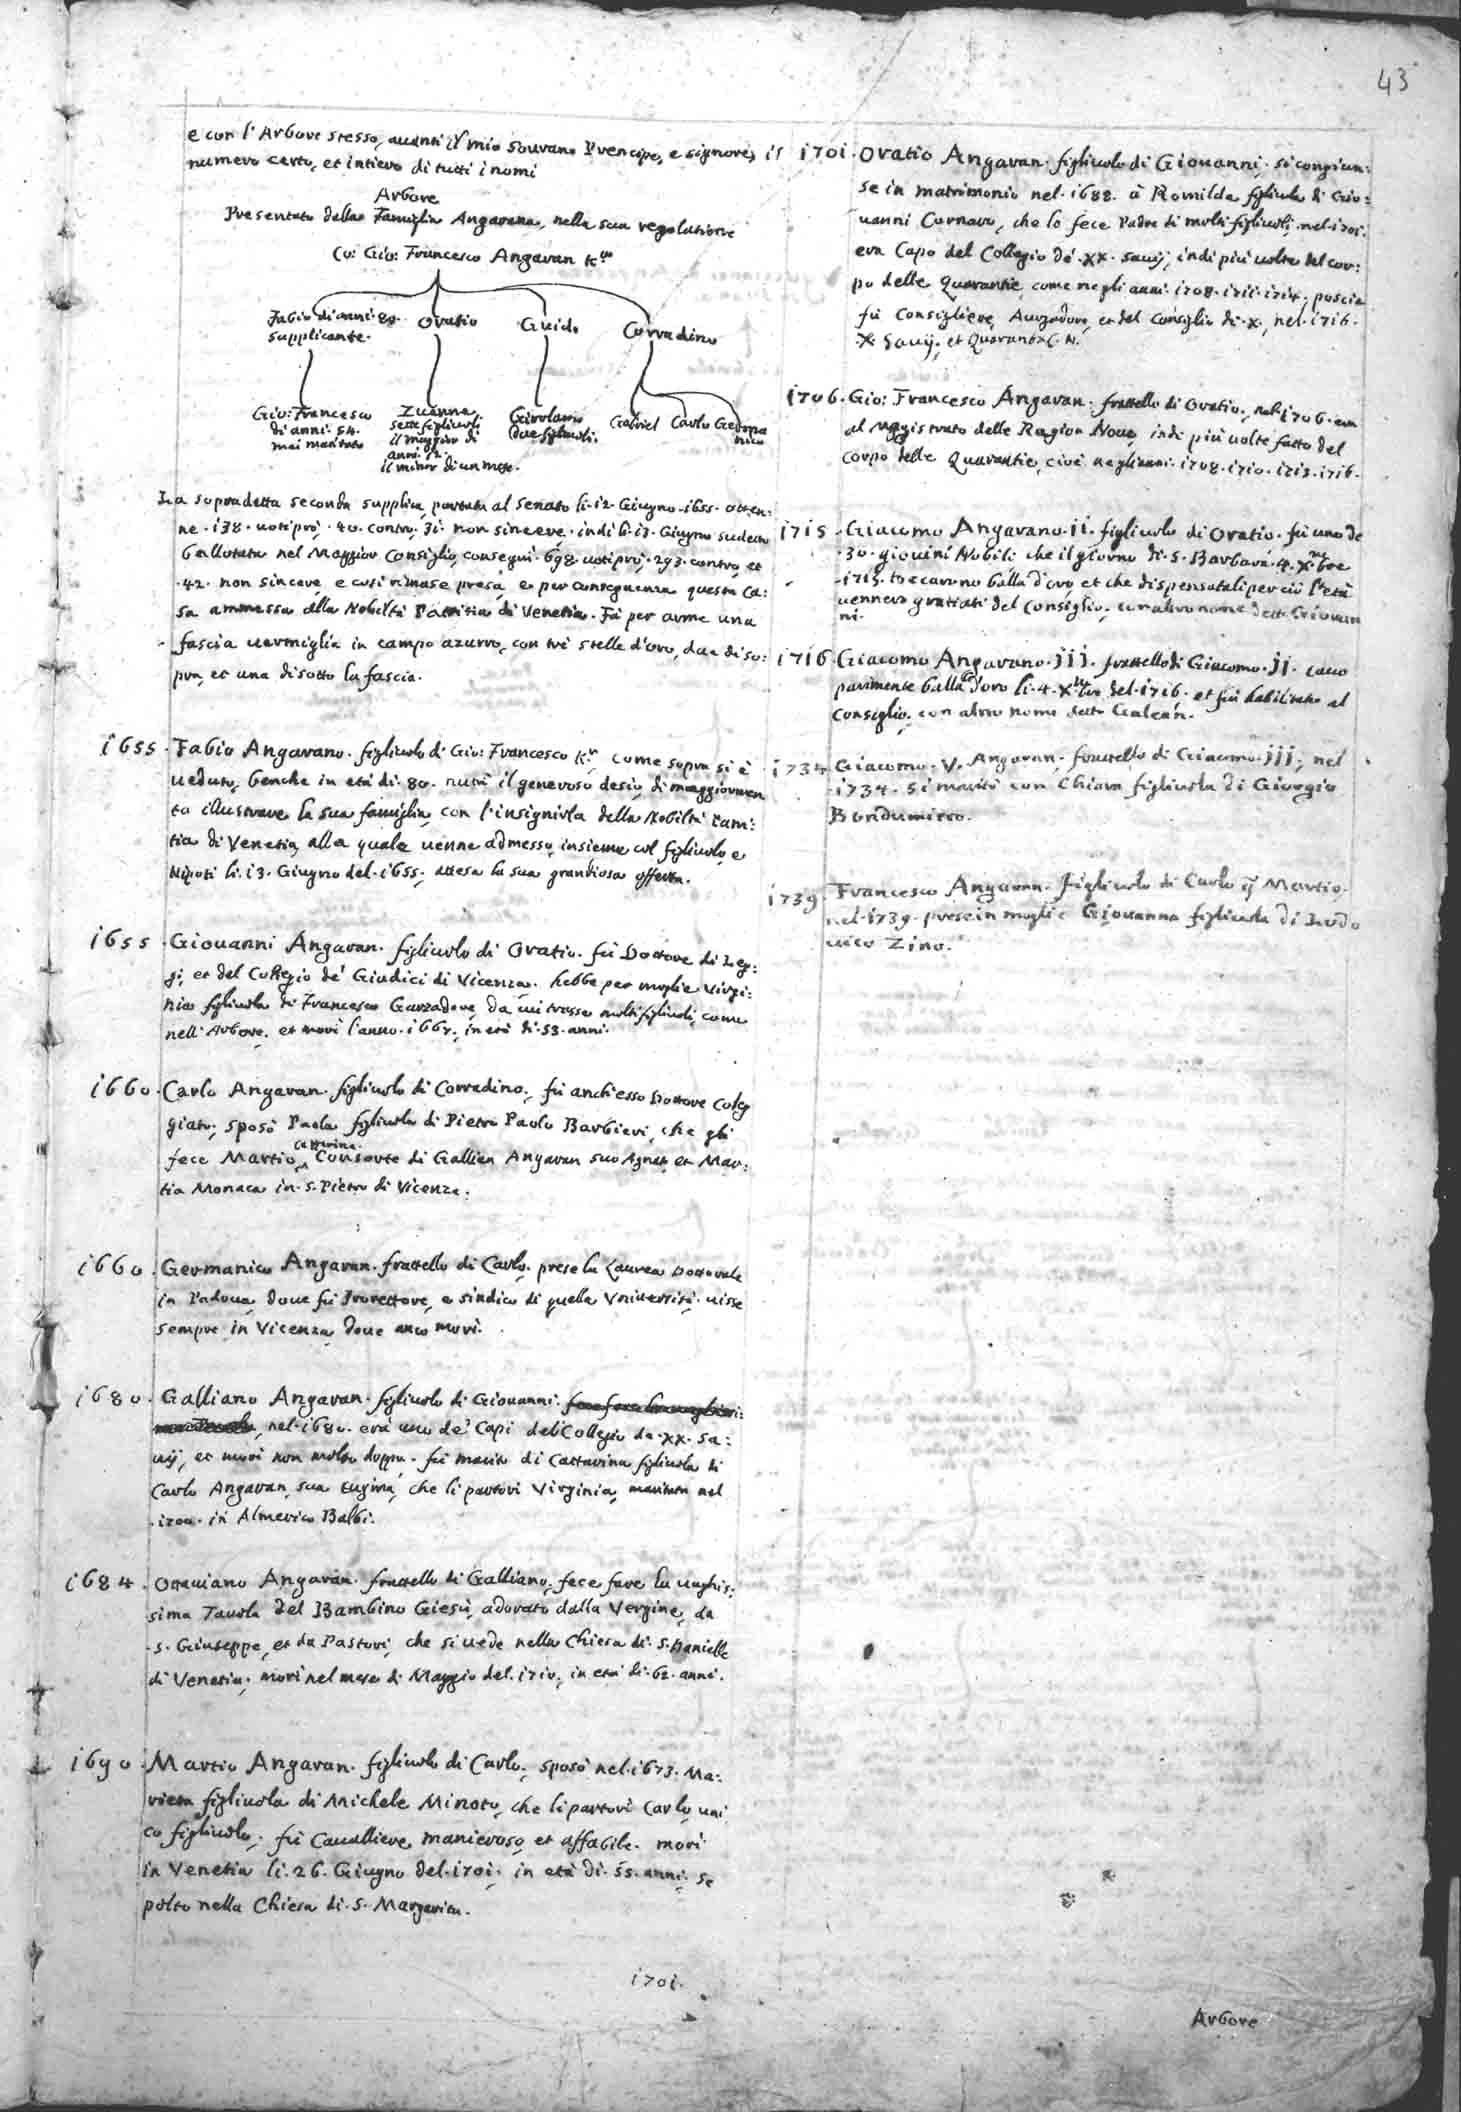 43
e con l'Arbore stesso, auanti il mio Sourano Prencipe, e signore, il
numero certo, et intiero di tutti i nomi
Arbore
Presentato della Famiglia Angarana, nella sua regolatione
Co: Gio: Francesco Angaran K.r
Fabio di anni 80.
supplicante.
Oratio
Guido
Corradino
Gio: Francesco
di anni 54.
mai maritato
Zuanne,
sette figliuoli
il maggior di
anni 12.
il minor di un mese.
Girolamo
due figliuoli.
Gabriel
Carlo
Germa
nico
La sopradetta seconda supplica, portata al Senato li 12 Giugno 1655. otten:
ne 138. uoti prò, 40. contro, 31. non sincere, indi li 13. Giugno sudetto
ballottata nel Maggior Consiglio, conseguì 698. uoti prò, 293. contro, et
42. non sincere, e così rimase presa, e per conseguenza questa Ca:
sa ammessa alla Nobiltà Patritia di Venetia. Fà per arme una
fascia uermiglia in campo azurro, con trè stelle d'oro, due di so:
pra, et una di sotto la fascia.
1655. Fabio Angarano. figliuolo di Gio: Francesco K.r, come sopra si è
ueduto, benche in età di 80. nutrì il generoso desio, di maggiormen
te illustrare la sua famiglia, con l'insignirla della Nobiltà Patri:
tia di Venetia, alla quale uenne admesso, insieme col figliuolo, e
Nipoti li 13. Giugno del 1655, attesa la sua grandiosa offerta.
1655. Giouanni Angaran. figliuolo di Oratio. fù Dottore di Leg:
gi, et del Collegio de' Giudici di Vicenza. hebbe per moglie Virgi:
nia figliuola di Francesco Garzadore, da cui trasse molti figliuoli, come
nell'Arbore. et morì l'anno 1667, in età di 53. anni.
1660. Carlo Angaran. figliuolo di Corradino, fù anch'esso Dottore Coleg
giato, sposò Paola figliuola di Pietro Paolo Barbieri, che gli
fece Martio, Catterina Consorte di Gallian Angaran suo Agnato, et Mar:
tia Monaca in S. Pietro di Vicenza.
1660. Germanico Angaran. frattello di Carlo, prese la Laurea Dottorale
in Padoua, doue fù Prorettore, e sindico di quella Vniuersità. uisse
sempre in Vicenza, doue anco morì.
1680. Galliano Angaran. figliuolo di Giouanni.
nel 1680. era uno de' Capi del Collegio de XX. Sa:
uij, et morì non molto doppo. fù marito di Cattarina figliuola di
Carlo Angaran, sua Cugina, che li partorì Virginia, maritata nel
1700. in Almerico Balbi.
1684. Ottauiano Angaran. frattello di Galliano, fece fare la uaghis:
sima Tauola del Bambino Giesù, adorato dalla Vergine, da
S. Giuseppe, et da Pastori, che si uede nella Chiesa di S. Danielle
di Venetia. morì nel mese di Maggio del 1710, in età di 62. anni.
1690. Martio Angaran. figliuolo di Carlo, sposò nel 1673. Ma:
rieta figliuola di Michele Minoto, che li partorì Carlo, uni
co figliuolo. fù Caualliere manieroso, et affabile. morì
in Venetia li 26. Giugno del 1701. in età di 55. anni, se
polto nella Chiesa di S. Margarita.
1701.
1701. Oratio Angaran. figliuolo di Giouanni. si congiun:
se in matrimonio nel 1688. à Romilda figliuola di Gio:
uanni Cornaro, che lo fece Padre di molti figliuoli, nel 1701.
era Capo del Collegio de' XX. Sauij, indi più uolte del cor:
po delle Quarantie, come negli anni 1708. 1711. 1714. poscia
fù Consigliere, Auogadore, et del Consiglio di X., nel 1716.
X Sauij, et Quaranta C. N.
1706. Gio: Francesco Angaran. frattello di Oratio, nel 1706. era
al Magistrato delle Ragion Noue, indi più uolte fatto del
Corpo delle Quarantie, cioè negli anni 1708. 1710. 1713. 1716.
1715. Giacomo Angarano. ii. figliuolo di Oratio. fù uno de
30. giouini Nobili, che il giorno di S. Barbara 4. Xmbre
1715. toccarono balla d'oro, et che dispensatali perciò l'età
uennero gratiati del Consiglio, con altro nome detto Giouan
ni.
1716. Giacomo Angarano. jjj. frattello di Giacomo. jj. cauò
parimente balla d'oro li 4. Xmbre del 1716. et fù habilitato al
Consiglio, con altro nome detto Galeán.
1734. Giacomo. V. Angaran. frattello di Giacomo. jjj, nel
1734. si maritò con Chiara figliuola di Giorgio
Bondumiero.
1739. Francesco Angaran. figliuolo di Carlo q Martio,
nel 1739. prese in moglie Giouanna figliuola di Lodo
uico Zino.
Arbore